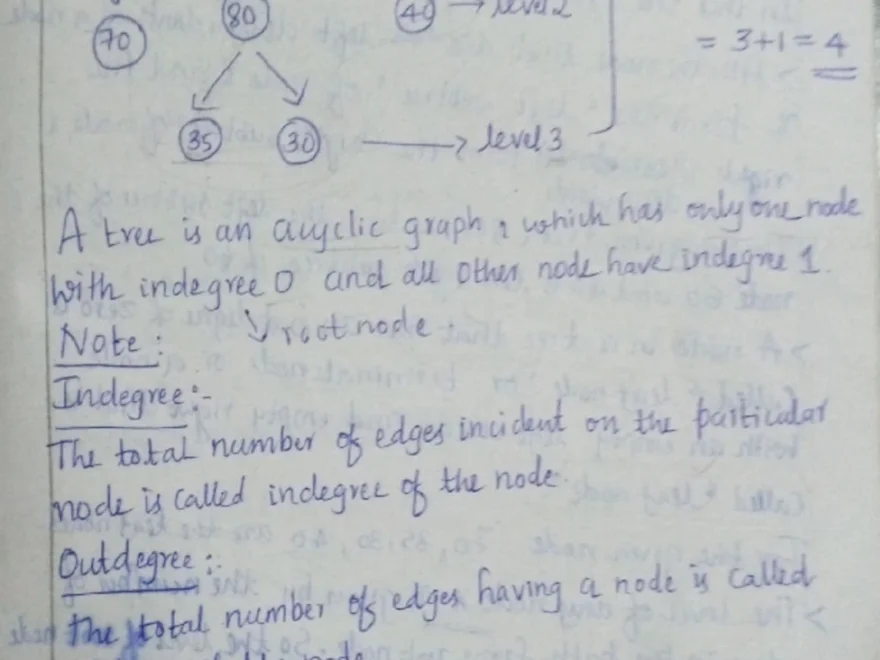 80
40 → level 2
70
= 3+1 = 4
35 30 → level 3
A tree is an acyclic graph, which has only one node
with indegree 0 and all other node have indegree 1.
↘ root node.
Note:
Indegree:-
The total number of edges incident on the particular
node is called indegree of the node.
Outdegree:-
The total number of edges having a node is called